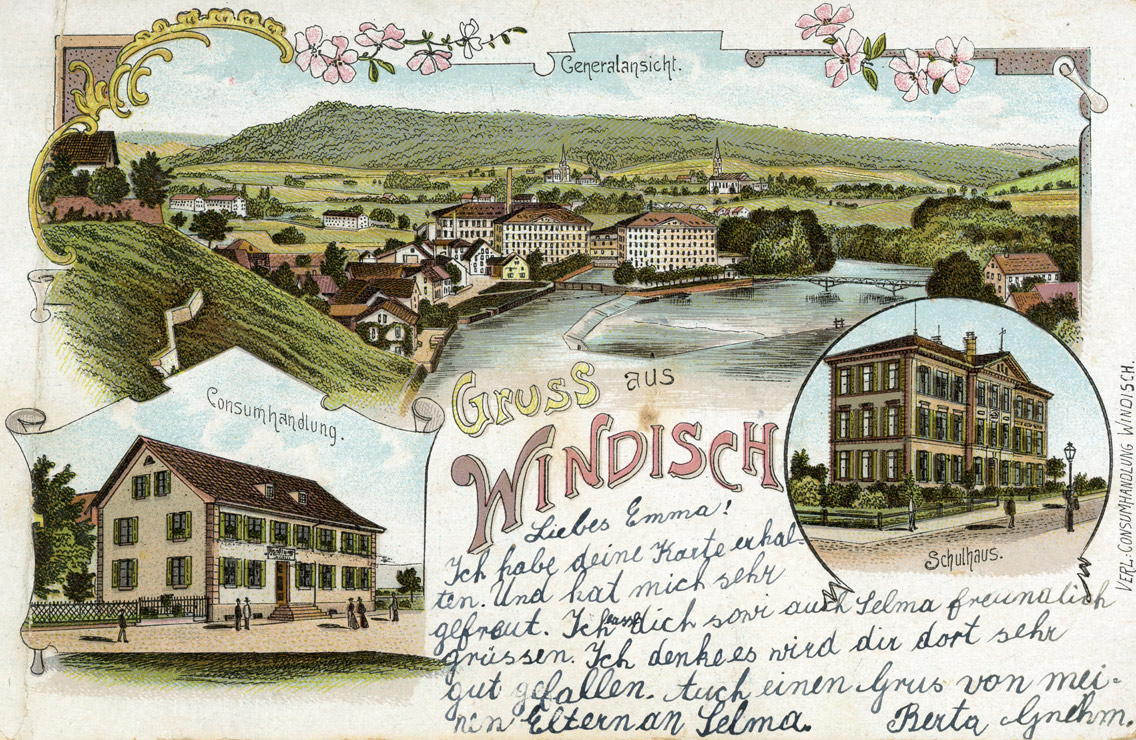 Generalansicht.
Consumhandlung.
Gruss aus
WINDISCH
Schulhaus.
VERL: CONSUMHANDLUNG WINDISCH.
Liebes Emma!
Ich habe deine Karte erhal-
ten. Und hat mich sehr
gefreut. Ich lasse dich sowi auch Selma freundlich
grüssen. Ich denke es wird dir dort sehr
gut gefallen. Auch einen Grus von mei-
nen Eltern an Selma. Berta Gnehm.